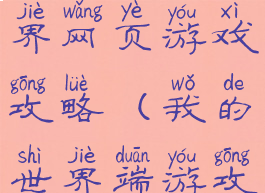 jiè wǎng yè yóu xì
界网页游戏
gōng lüè wǒ de
攻略（我的
shì jiè duān yóu gōng
世界端游攻